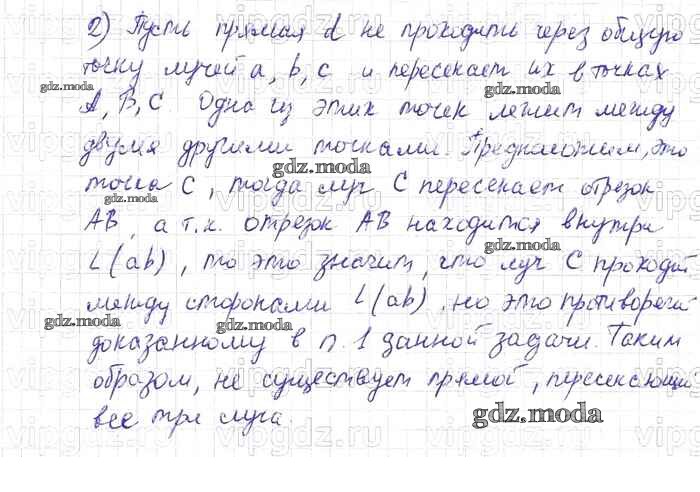 2) Пусть прямая d не проходить через общую
точку лучей a, b, c и пересекает их в точках
A, B, C. Одна из этих точек лежит между
двумя другими точками. Предположим, это
точка C, тогда луч C пересекает отрезок
AB, а т.к. отрезок AB находится внутри
L(ab), то это значит, что луч C проходит
между сторонами L(ab), но это противоречи
доказанному в п. 1 данной задачи. Таким
образом, не существует прямой, пересекающ
все три луча.
gdz.moda
gdz.moda
gdz.moda
gdz.moda
gdz.moda
gdz.moda
gdz.moda
gdz.moda
gdz.moda
vipgdz.ru